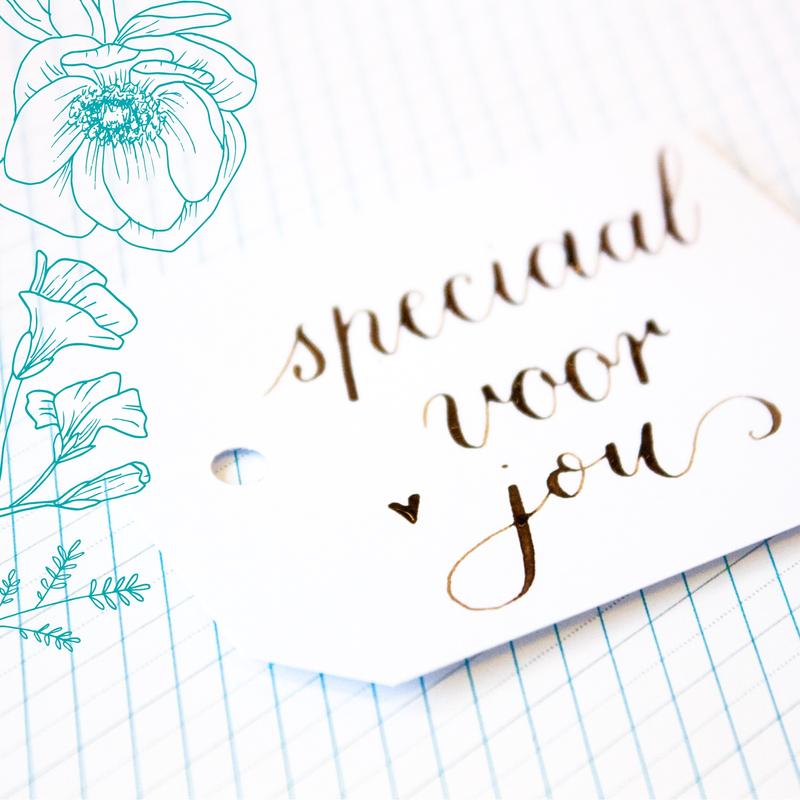 speciaal
voor
jou